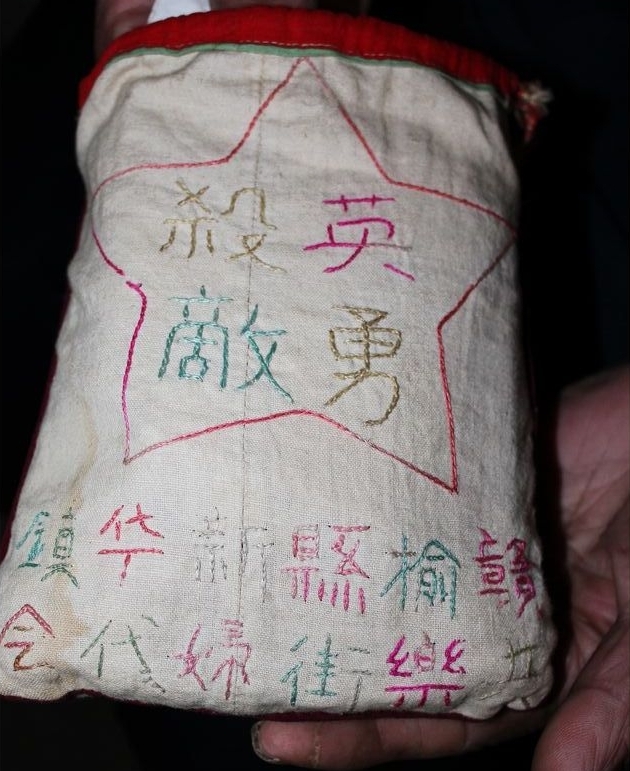 英勇
殺敵
贛榆縣新华鎮
樂街婦代会